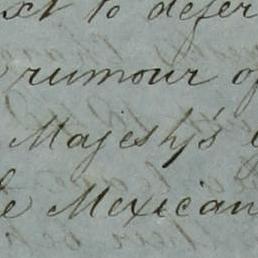 to defer
rumour of
Majesty's
Mexican